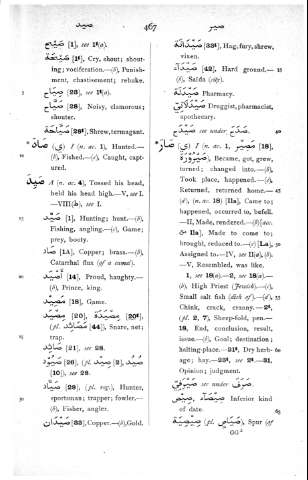 صيد
467
صير
صَيْح [1], see 1¹(a).
صَيْحَة [1¹], Cry, shout; shout-
ing; vociferation.—(b), Punish-
ment, chastisement; rebuke.
5 صِيَاح [23], see 1¹(a).
صَيَّاح [28], Noisy, clamorous;
shouter.
صَيَّاحَة [28¹], Shrew, termagant.
صَادَ* (ي) I (n. ac. 1), Hunted.—
10 (b), Fished.—(c), Caught, cap-
tured.
صَيِدَ A (n. ac. 4), Tossed his head,
held his head high.—V, see I.
—VIII(ة), see I.
15 صَيْد [1], Hunting; hunt.—(b),
Fishing, angling.—(c), Game;
prey, booty.
صَاد [1A], Copper; brass.—(b),
Catarrhal flux (of a camel).
20 أَصْيَد [14], Proud, haughty.—
(b), Prince, king.
مَصِيد [18], Game.
مِصْيَد [20], مِصْيَدَة [20¹],
(pl. مَصَائِد [44]), Snare, net;
25 trap.
صَائِد [21], see 28.
صَيُود [26], (pl. صِيْد [2], صُيُد
[10]), see 28.
صَيَّاد [28], (pl. reg.), Hunter,
30 sportsman; trapper; fowler.—
(b), Fisher, angler.
صَيْدَان [33], Copper.—(b), Gold.
صَيْدَانَة [33¹], Hag, fury, shrew,
vixen.
صَيْدَآء [42], Hard ground.— 35
(b), Saïda (city).
صَيْدَلَة Pharmacy.
صَيْدَلَانِيّ Druggist, pharmacist,
apothecary.
صَيْدَح see under صَدَحَ. 40
صَارَ* (ي) I (n. ac. 1, مَصِير [18],
صَيْرُورَة), Became, got, grew,
turned; changed into.—(b),
Took place, happened.—(c),
Returned, returned home.— 45
(d), (n. ac. 18) [IIa], Came to;
happened, occurred to, befell.
—II, Made, rendered.—(b)[acc.
& IIa], Made to come to;
brought, reduced to.—(c) [La], 50
Assigned to.—IV, see II(a), (b).
—V, Resembled, was like.
1, see 18(a).—2, see 18(a).—
(b), High Priest (Jewish).—(c),
Small salt fish (dish of).—(d), 55
Chink, crack, cranny.—2¹,
(pl. 2, 7), Sheep-fold, pen.—
18, End, conclusion, result,
issue.—(b), Goal; destination;
halting-place.—21¹, Dry herb- 60
age; hay.—23¹, see 2¹.—31,
Opinion; judgment.
صَيْرَفِيّ see under صَرَفَ.
صِيصَآء, صِيص Inferior kind
of date. 65
صِيصِيَة (pl. صَيَاصٍ), Spur (of
GG²